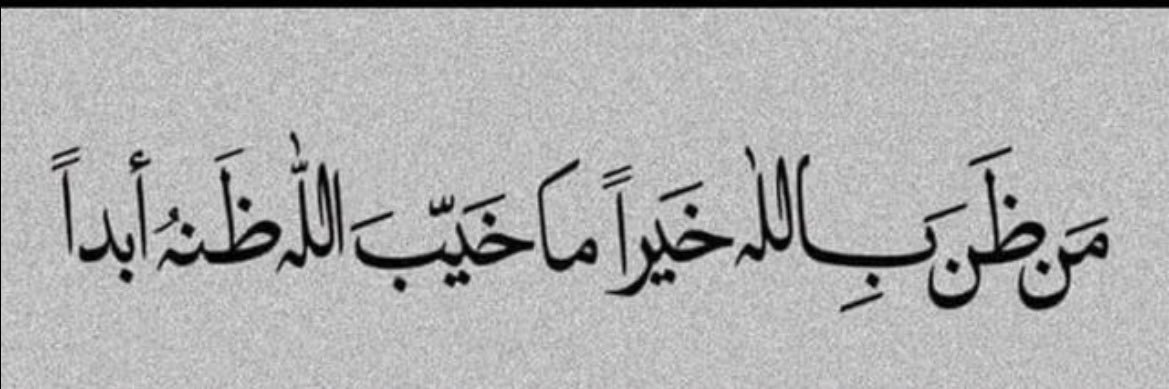 مَن ظَن بِاللهٰ خَيراً ما خَيّبَ اللّٰه ظَنهُ أبداً